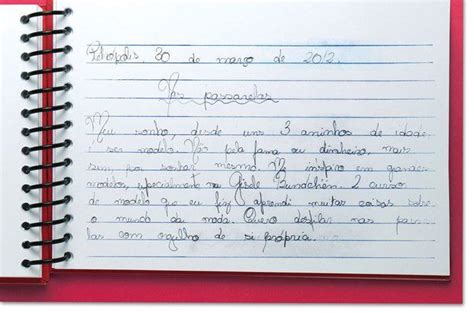 Petrópolis, 20 de março de 2012.
Nas passarelas
Meu sonho, desde uns 3 aninhos de idade
é ser modelo. Não pela fama ou dinheiro, mais
sim por sonhar mesmo. Me inspiro em grandes
modelos, especialmente na Gisele Bundchen. 2 cursos
de modelo que eu fiz, aprendi muitas coisas sobre
o mundo da moda. Quero desfilar nas passa
las com orgulho de si própria.